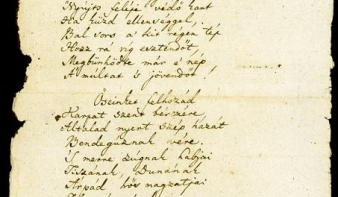 Nyújts feléje védő kart
Ha küzd ellenséggel,
Bal sors a kit régen tép
Hozz rá víg esztendőt,
Megbünhödte már e nép
A multat 's jövendőt!
Őseinket felhozád
Kárpát szent bérczére,
Általad nyert szép hazát
Bendegúznak vére.
'S merre zúgnak habjai
Tiszának, Dunának
Árpád hős magzatjai